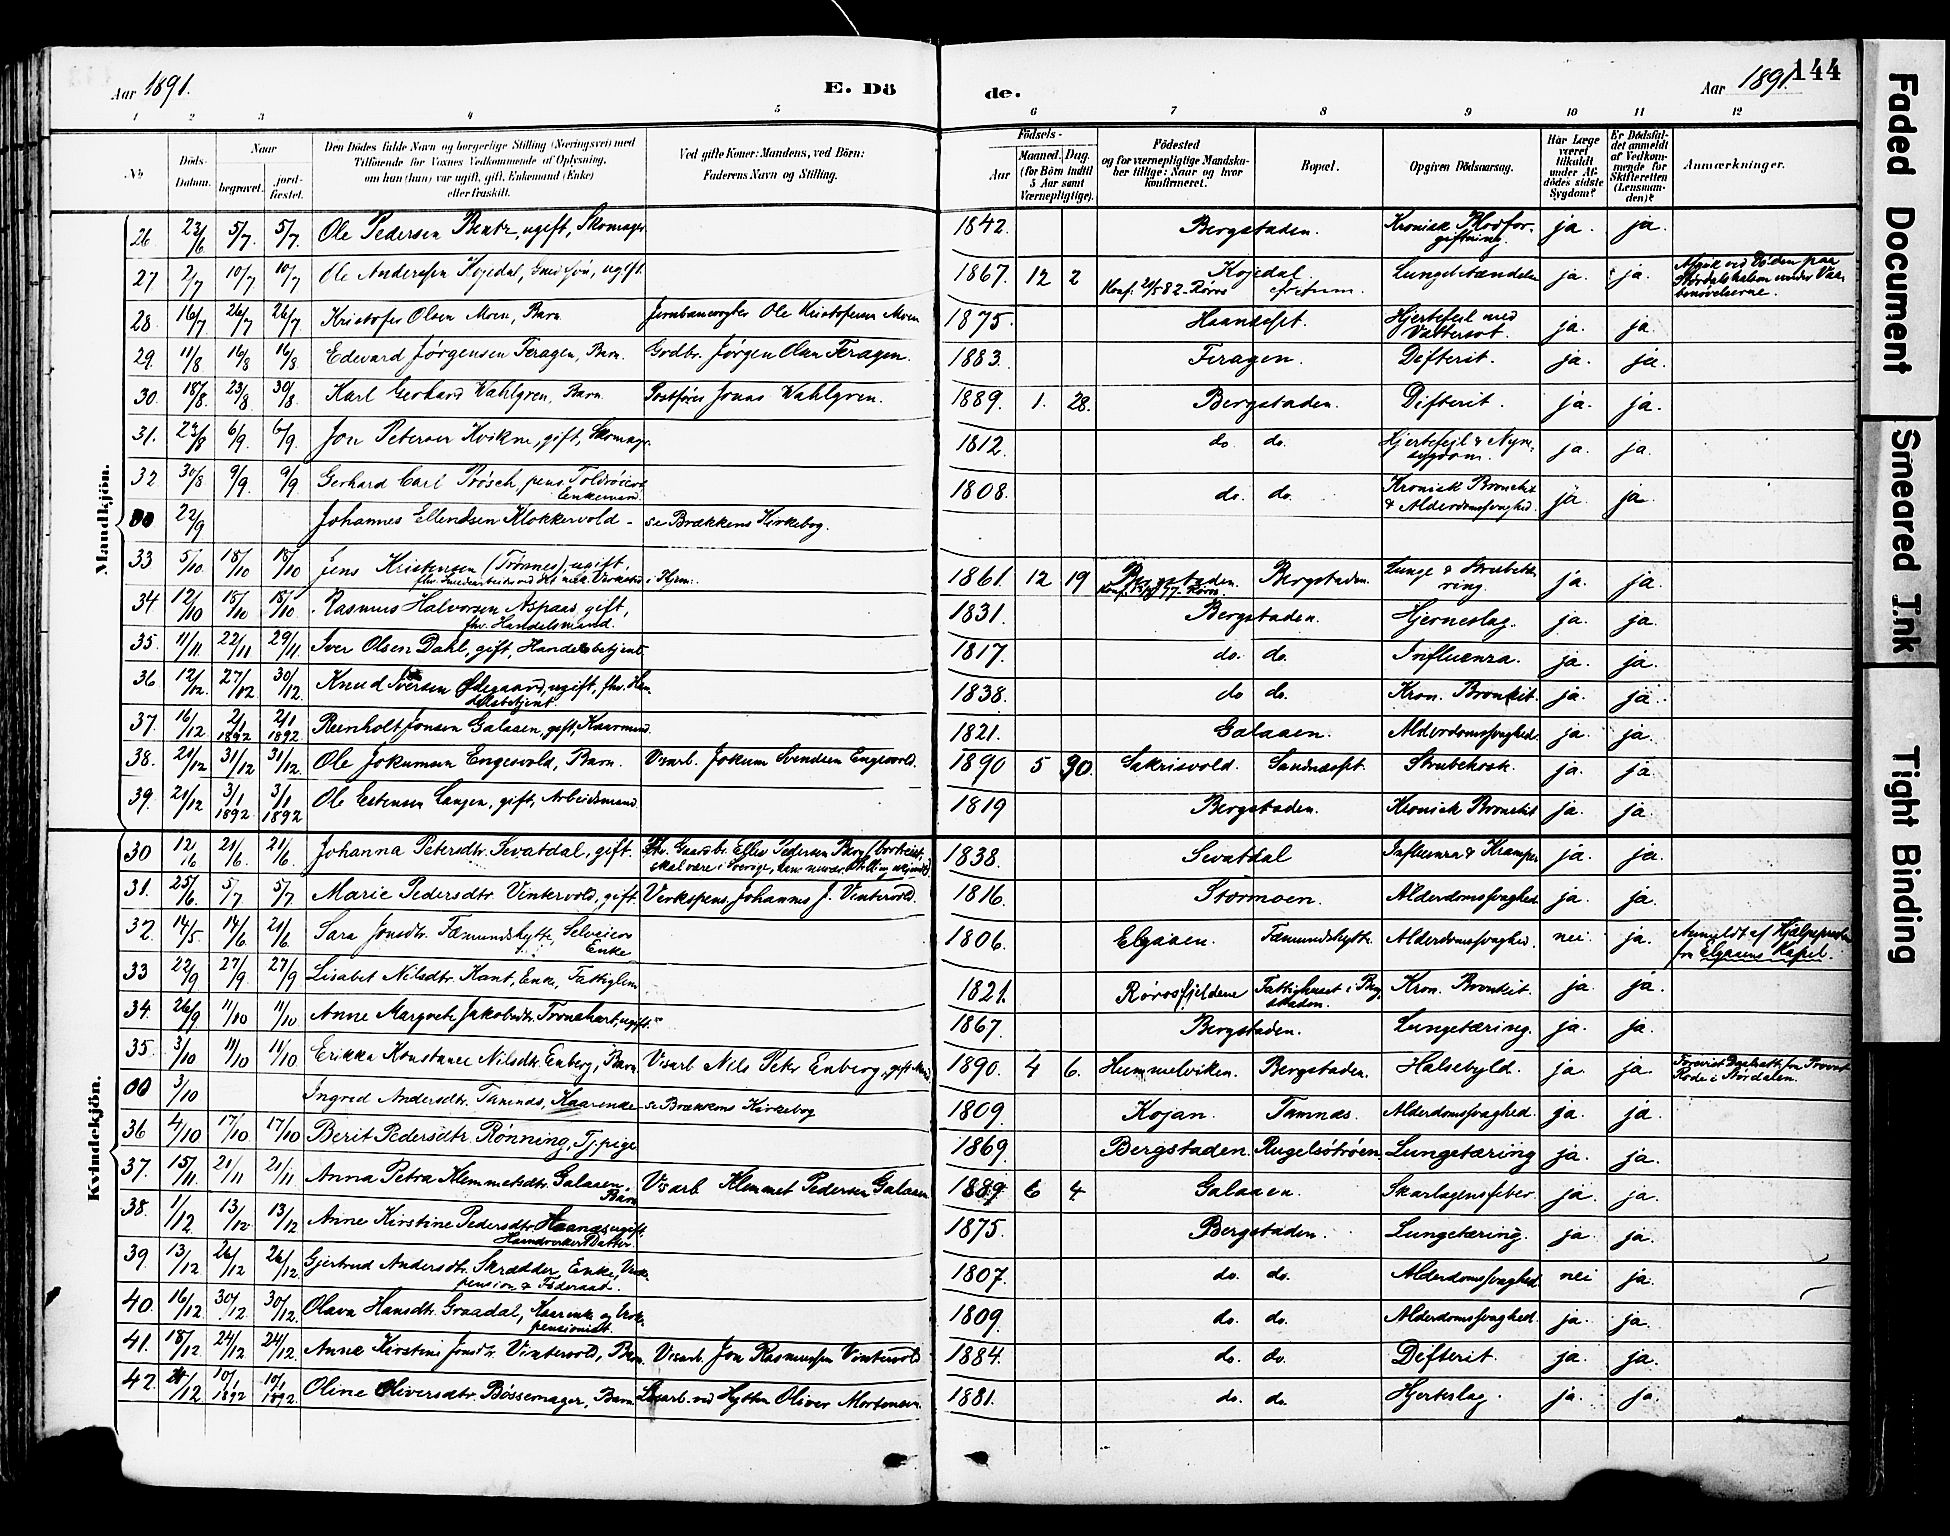 Aar 1891. E. Dö
de. Aar 1891. 144
1 2 3 4 5 6 7 8 9 10 11 12
No
Döds-Datum.
Naar
begravet.
jordfæstet.
Den Dödes fulde Navn og borgerlige Stilling (Næringsvei) med
Tilföiende for Voxnes Vedkommende af Oplysning,
om han (hun) var ugift, gift, Enkemand (Enke)
eller fraskilt.
Ved gifte Koner: Mandens, ved Börn:
Faderens Navn og Stilling.
Födsels-
Aar
Maaned. Dag.
(for Börn indtil
5 Aar samt
Værnepligtige).
Födested
og for værnepligtige Mandska-
ber tillige: Naar og hvor
konfirmeret.
Bopæl.
Opgiven Dödsaarsag.
Har Læge
været
tilkaldt
under Af-
dödes sidste
Sygdom?
Er Dödsfal-
det anmeldt
af Vedkom-
mende for
Skifteretten
(Lensman-
den)?
Anmærkninger.
Mandkjön.
26 23/6 5/7. 5/7. Ole Pedersen Bentz, ugift, Skomager 1842. Bergstaden. Kronisk Blodforgiftning. ja. ja.
27 2/7 10/7 10/7 Ole Anderssen Kojedal, ugift. 1867. 12 2 Kojedal Konf. 82 Röros Lungebetændelse ja. ja.
28. 16/7 26/7 26/7 Kristofer Olsen Moen, Barn. Jernbanevogter Ole Kristofersen Moen 1875. Haandset. Hjertefeil med Vattersot. ja. ja.
29. 11/8 16/8 16/8. Edevard Jørgensen Feragen, Barn. Grdbr. Jørgen Olsen Feragen. 1883. Feragen. Difterit. ja. ja.
30. 18/8. 23/8 30/8. Karl Gerhard Wahlgren, Barn. Postfører Jonas Wahlgren. 1889. 1. 28. Bergstaden. Difterit. ja. ja.
31. 23/8 6/9. 6/9. Jon Petersen Kvikne, gift, Skomager 1812. do. do. Hjertefejl & Nyresygdom. ja. ja.
32 30/8 9/9. 9/9. Gerhard Carl Bösch, pens. Enkemand. 1808. do. do. Kronisk Bronchit & Alderdomssvaghed. ja ja
00 22/9 Johannes Ellendsen Klokkervold - se Brækkens Kirkebog.
33 5/10 18/10 18/10 Jens Kristensen (Trönnes), ugift, 1861. 12 19 Bergstaden. Konf. 77. Röros. Bergstaden. Lunge & Strubetæring. ja. ja.
34 12/10 18/10 18/10. Rasmus Halvorsen Aspaas, gift, fhv. Handelsmand. 1831. Bergstaden. Hjerneslag. ja. ja.
35. 11/11 22/11 29/11. Iver Olsen Dahl, gift, Handelsbetjent 1817. do. do. Influenza. ja. ja.
36 12/12. 27/12 30/12. Knud Iversen Ødegaard, ugift, fhv. Handelsbetjent. 1838. do do. Kron. Bronkit. ja. ja.
37. 16/12 2/1 1892 2/1 1892 Reinholt Jonsen Galaaen, gift, Kaarmand. 1821. Galaaen. Alderdomssvaghed. ja. ja.
38. 21/12 31/12 31/12. Ole Jokumsen Engesvold, Barn. Vsarb. Jokum Svendsen Engesvold. 1890 5 30. Sakrisvold. Sandnæsset. Strubehoste. ja. ja.
39. 21/12 3/1 1892 3/1 1892 Ole Estensen Langen, gift, Arbeidsmand. 1819 Bergstaden. Kronisk Bronchit ja. ja.
Kvindekjön.
30 12/6 21/6. 21/6. Johanna Petersdtr. Sevatdal, gift. 1838. Sevatdal Influenza & Kramper ja. ja.
31. 25/6. 5/7 5/7 Marie Pedersdtr. Vintervold, gift. Verkspens. Johannes J. Vintervold. 1816. Stormoen. Alderdomssvaghed ja. ja.
32. 14/5 14/6 21/6. Sara Jonsdtr. Fæmundshytte, Selveiers Enke 1806. Elgaaen. Fæmundshytte. Alderdomssvaghed. nei ja. Anmeldt af Hjælpepræsten fra Elgaaens Kapel.
33 22/9 27/9 27/9 Lisabet Nilsdtr. Kant, Enke, Fattiglem 1821. Rörosfjeldene Fattighuset i Bergstaden. Kron. Bronkit. ja ja.
34. 26/9 11/10 11/10 Anne Margrete Jakobsdtr. Tronshart, ugift. 1867. Bergstaden. Lungetæring. ja. ja.
35. 3/10 11/10 11/10. Erikka Konstance Nilsdtr. Enberg, Barn Vsarb Nils Peter Enberg, gift 1890. 4 6. Hummelviken. Bergstaden. Halsebyld. ja. ja.
00 3/10 Ingred Andersdtr. Tamnes, Kaarenke se Brækkens Kirkebog 1809. Kojan. Tamnæs. Alderdomssvaghed. ja. ja
36 4/10 17/10 17/10 Berit Pedersdtr. Rønning, Tj.pige 1869. Bergstaden. Rugelsötröen. Lungetæring ja. ja.
37. 15/11 21/11 21/11 Anna Petra Klemmetsdtr. Galaaen, Barn Vsarb Klemmet Pedersen Galaaen 1889 6 4 Galaaen. Skarlagensfeber. ja. ja.
38. 1/12 13/12 13/12 Anne Kirstine Pedersdtr. Haanæs, ugift, Haandverkers Datter. 1875. Bergstaden. Lungetæring. ja ja.
39. 13/12 26/12 26/12. Gjertrud Andersdtr. Skrædder, Enke, Verkspension & Föderaad. 1807. do. do. Alderdomssvaghed nei ja.
40. 16/12 30/12 30/12. Olava Hansdtr. Graadal, Kaarenke og Verkspensionist. 1809. do. do. Alderdomssvaghed. ja. ja.
41. 18/12 24/12 24/12. Anne Kirstine Jonsdtr. Vintervold, Barn. Vsarb. Jon Rasmussen Vintervold 1884. do. do. Difterit. ja. ja.
42. /12 10/1 1892 10/1 1892. Oline Oliversdtr. Bössemager, Barn. ved Hytten Oliver Mortensen. 1881. do. do. Hjerteslag. ja. ja.
Faded Document
Smeared Ink
Tight Binding